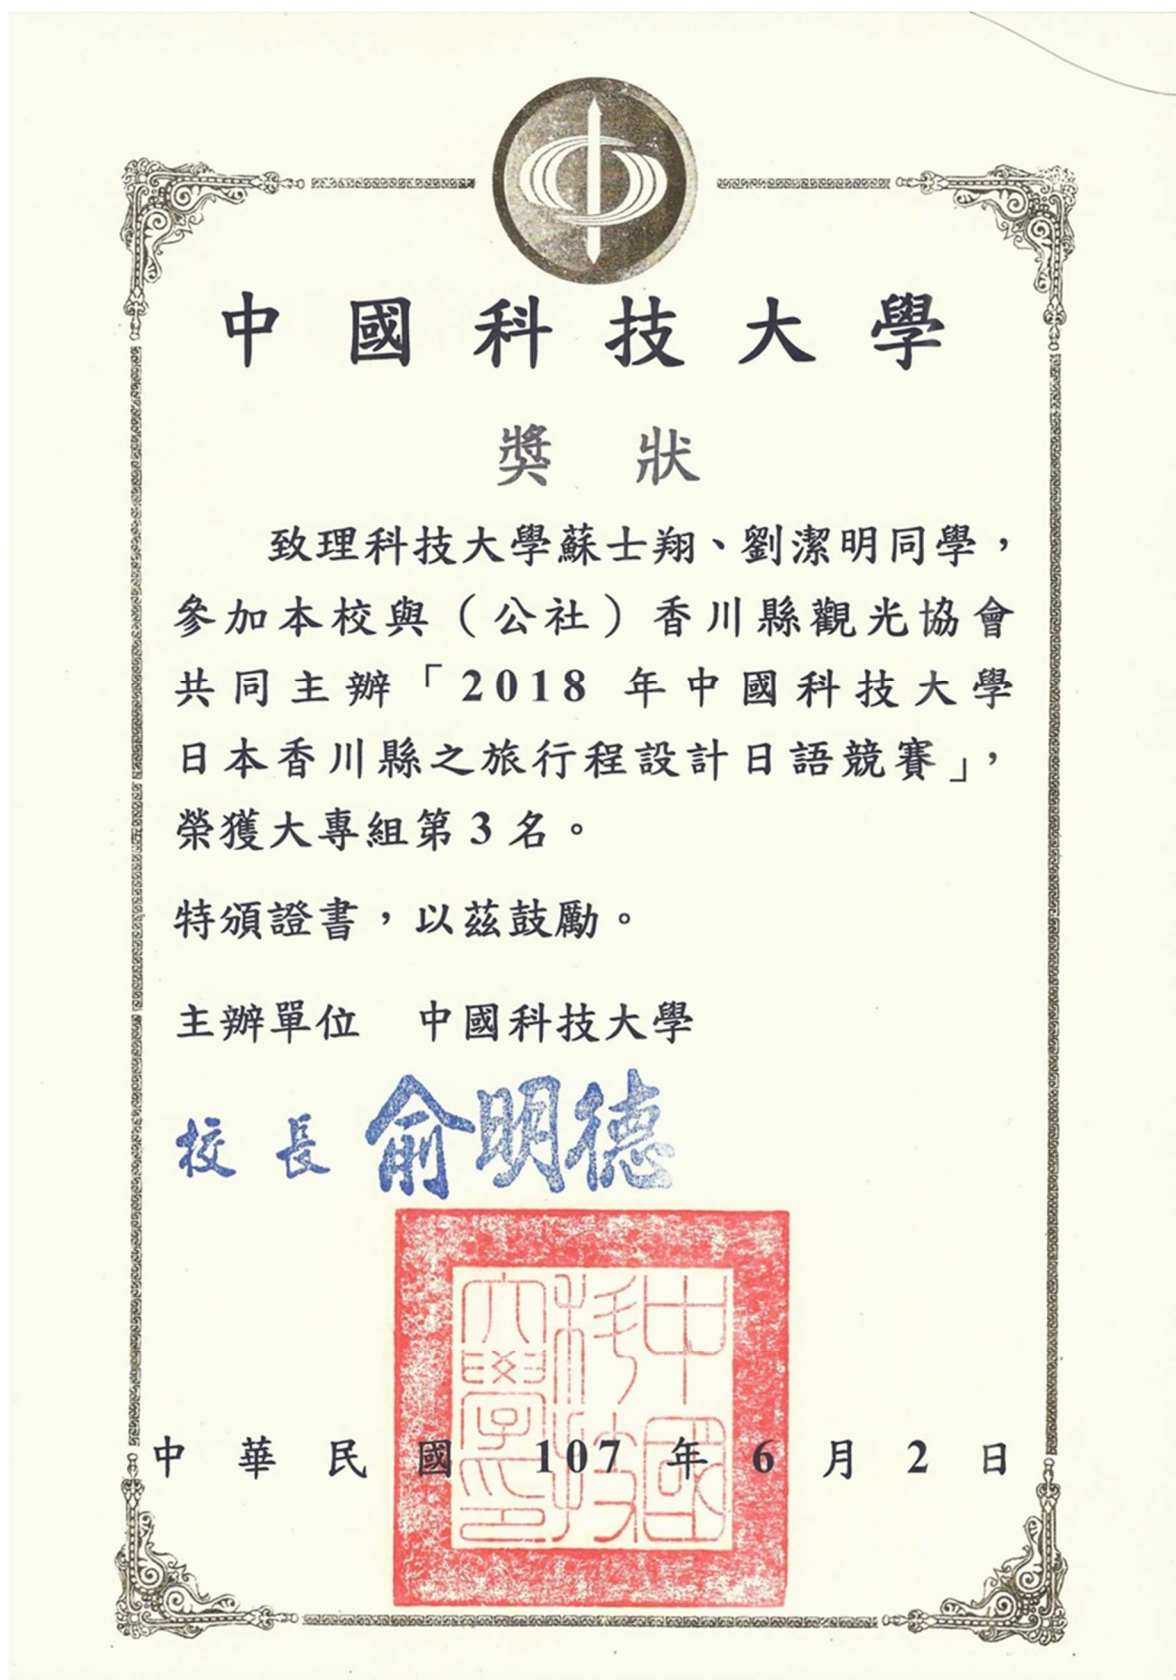 中國科技大學
獎狀
致理科技大學蘇士翔、劉潔明同學，
參加本校與（公社）香川縣觀光協會
共同主辦「2018 年中國科技大學
日本香川縣之旅行程設計日語競賽」，
榮獲大專組第 3 名。
特頒證書，以茲鼓勵。
主辦單位　中國科技大學
校長 俞明德
中國科技大學印
中華民國 107 年 6 月 2 日